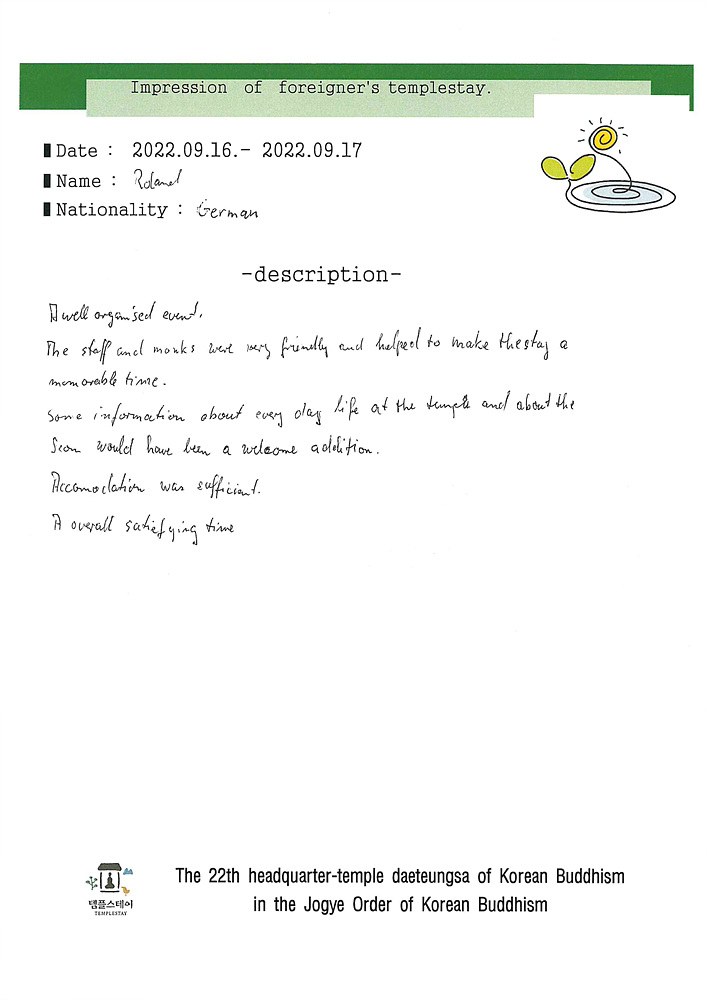 Impression of foreigner's templestay.
Date : 2022.09.16.- 2022.09.17
Name : Roland
Nationality : German
-description-
A well organised event.
The staff and monks were very friendly and helped to make the stay a
memorable time.
Some information about every day life at the temple and about the
Seon would have been a welcome addition.
Accomodation was sufficient.
A overall satisfying time
템플스테이
TEMPLESTAY
The 22th headquarter-temple daeteungsa of Korean Buddhism
in the Jogye Order of Korean Buddhism